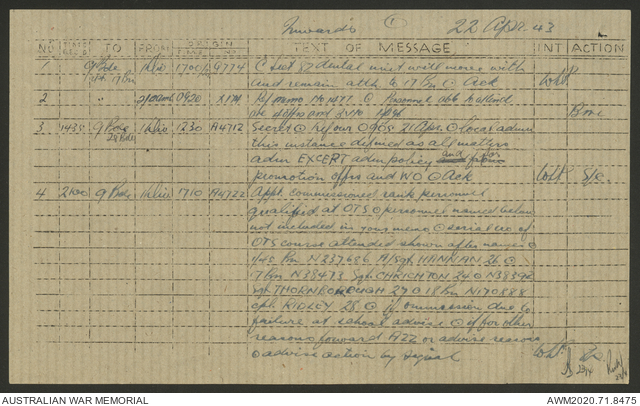 Inwards 1 22 Apr. 43
NO. TO FROM ORIGIN TEXT OF MESSAGE INT ACTION
1 9 Bde 17 Bn 1700 G774 C Sect 87 dental unit will move with
and remain atth to 17 Bn @ Ack
2 " 0920 Ry memo No 1477 @ Personnel
are
3 1435 9 Bde 1230 A4712 Secret @ @ 905 21 Apr @ local admin
this instance defined as all matters
adm EXCERT adm policy and
promotion offrs and WO @ Ack S/C.
4 2100 9 Bde 1710 A4722 Appt commissioned rank personnel
qualified at OTS @ personnel named below
not included in your memo @ serial no of
OTS course attended shown after names @
1/45 Bn N237686 A/Sgt HANNAN 26 @
17 Bn N38473 Sgt CHRICHTON 24 @ N38392
Sgt THORNBOROUGH 27 @ 18 Bn N170888
cpl RIDLEY 28 @ if ommission due to
failure at school advise @ if for other
reasons forward A22 or advise reasons
@ advise action by signal
AUSTRALIAN WAR MEMORIAL AWM2020.71.8475